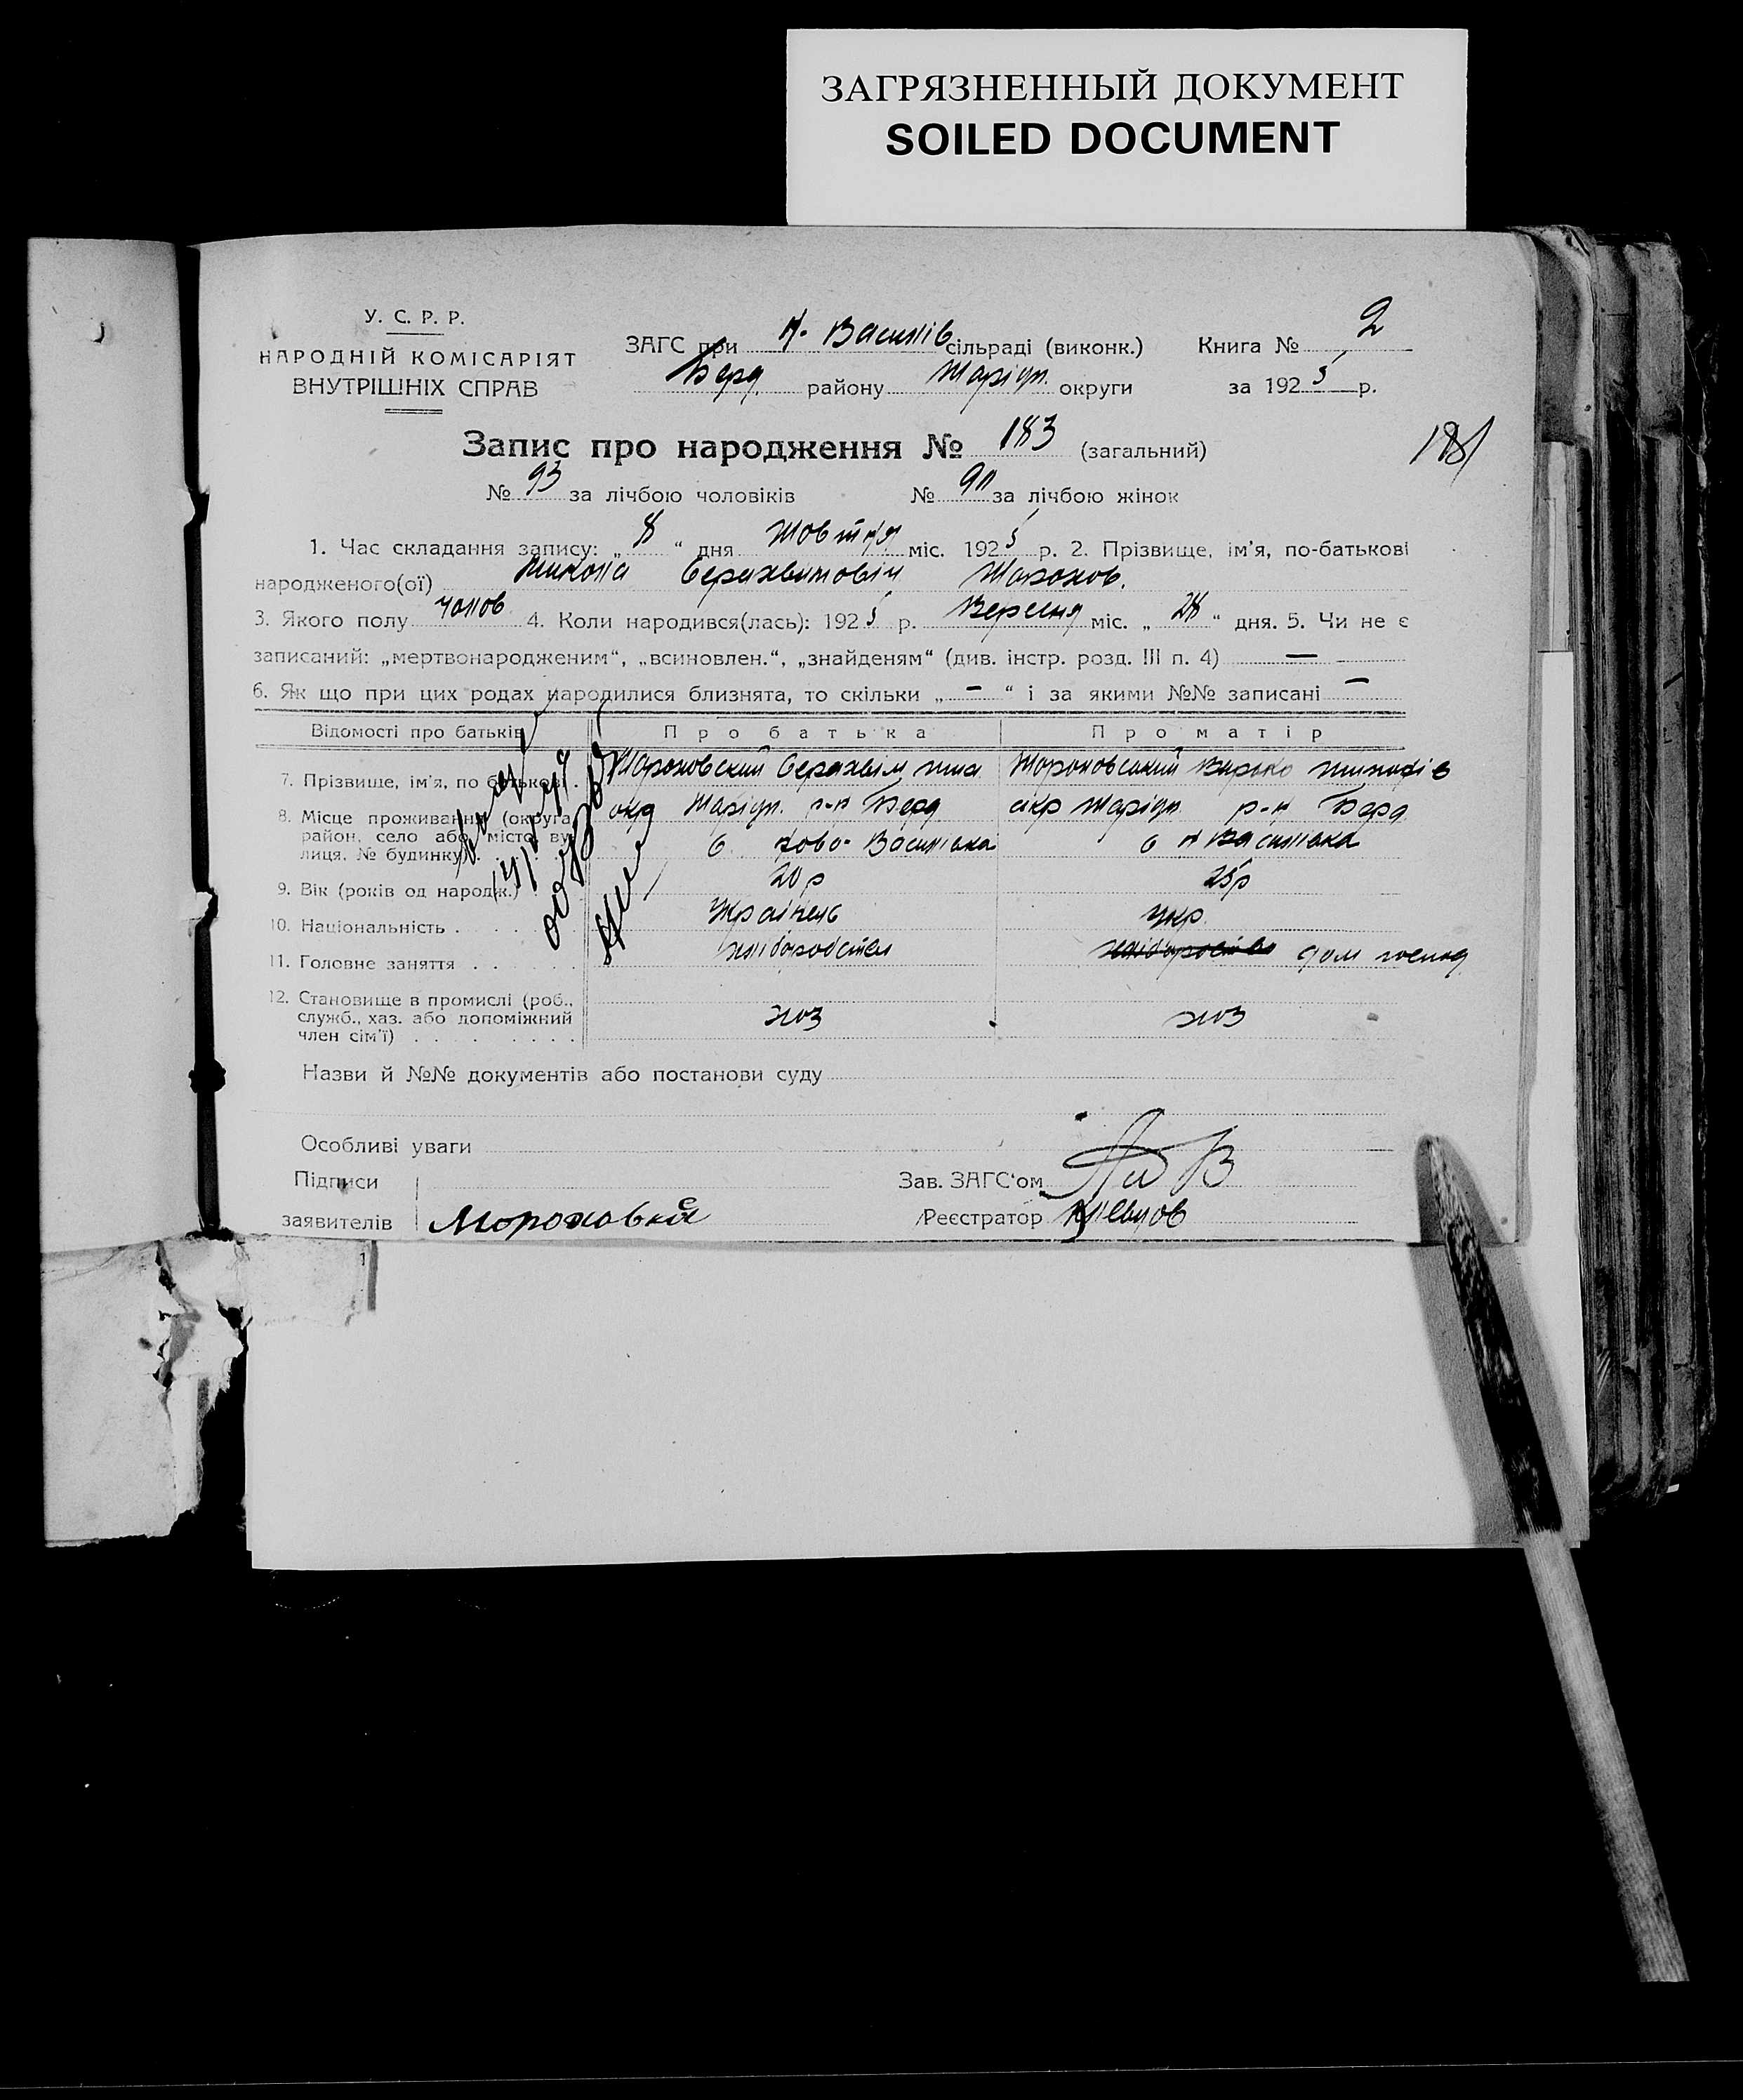 ЗАГРЯЗНЕННЫЙ ДОКУМЕНТ
SOILED DOCUMENT
У. С. Р. Р.
НАРОДНІЙ КОМІСАРІЯТ
ВНУТРІШНІХ СПРАВ
ЗАГС при Н. Василів сільраді (виконк.)
Берд. району Маріуп. округи
Книга № 2
за 1925 р.
Запис про народження № 183 (загальний)
181
№ 93 за лічбою чоловіків № 90 за лічбою жінок
1. Час складання запису: „ 8 “ дня Жовтня міс. 1925 р. 2. Прізвище, ім'я, по-батькові
народженого(ої) Микола Серахвимович Морохов.
3. Якого полу чолов 4. Коли народився(лась): 1925 р. Вересня міс. „ 28 “ дня. 5. Чи не є
записаний: „мертвонародженим“, „всиновлен.“, „знайденям“ (див. інстр. розд. III п. 4) —
6. Як що при цих родах народилися близнята, то скільки „ — “ і за якими №№ записані —
Відомості про батьків Про батька Про матір
7. Прізвище, ім'я, по батькові . Мороховский Серахвім Мороховський
8. Місце проживання (округа, район, село або місто, вулиця, № будинку) . окр Маріуп. р-н Берд окр Маріуп р-н Берд
с. Ново-Василівка с Н Василівка
9. Вік (років од народж.) 20 р 25 р
10. Національність . . . . Українець укр.
11. Головне заняття . . . . . хлібороб дом господ
12. Становище в промислі (роб., служб., хаз. або допоміжний член сім'ї) . . . . . . . . хоз хоз
Назви й №№ документів або постанови суду
Особливі уваги
Підписи
заявителів Мороховский
Зав. ЗАГС'ом
Реєстратор